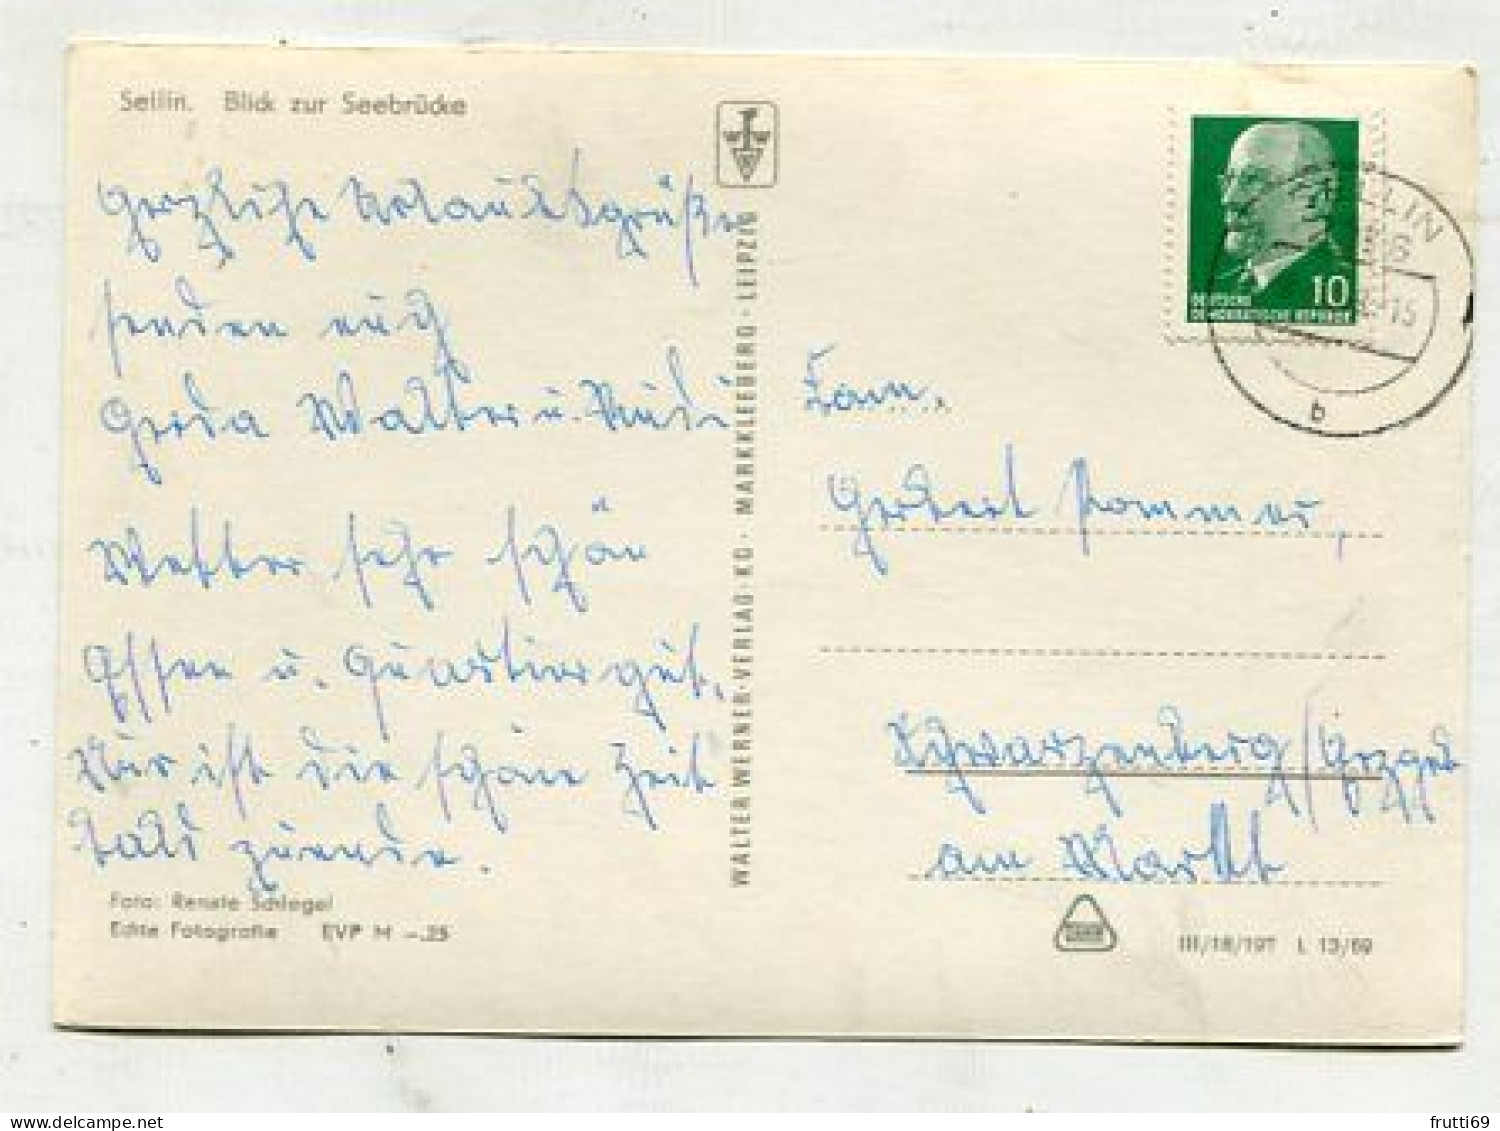 Sellin. Blick zur Seebrücke
Herzliche Urlaubsgrüße
senden euch
Gerda Walter u. Rudi
Wetter sehr schön
Essen u. Quartier gut,
Nur ist die schöne Zeit
bald zuende.
Foto: Renate Schlegel
Echte Fotografie EVP M -.25
WALTER WERNER-VERLAG-KG · MARKKLEEBERG · LEIPZIG
DEUTSCHE 10
DEMOKRATISCHE REPUBLIK
SELLIN
15
b
Fam.
Herbert Pommer,
Schwarzenberg/Erzgeb
am Markt
III/18/197 L 13/69
frutti69